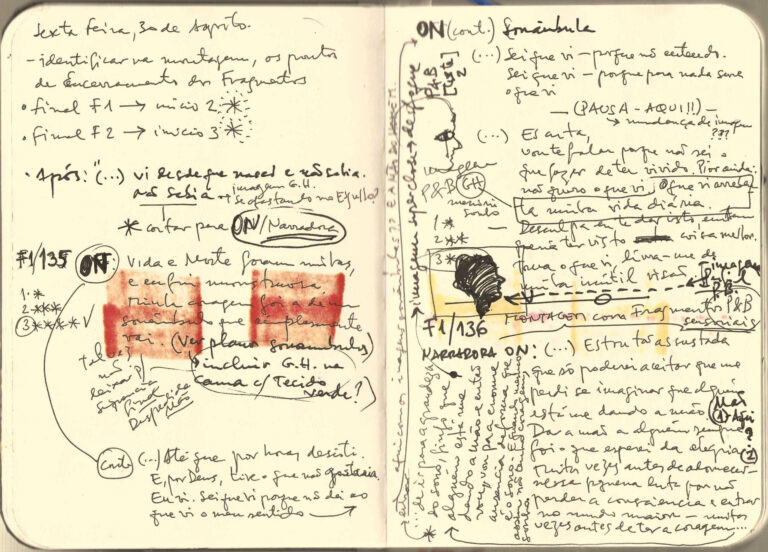 Sexta feira, 30 de Agosto.
- identificar na montagem, os pontos
de Encerramento dos Fragmentos
• final F1 → início 2 *
• final F2 → início 3 *
• Após: "(...) vi desde que nasci e não sabia.
não sabia →
imagem G.H.
se afastando no Exílio?
* cortar para ON/Narradora
F1/135 ON: Vida e Morte foram minhas,
e eu fui monstruosa,
minha coragem foi a de um
sonâmbulo que simplesmente
vai. (Ver plano sonâmbulos)
1. *
2. ***
3 **** ✓
↳ incluir G.H. na
cama c/ Tecido
verde?)
talvez
não
deixar p/
sequencia
final
Despedida
Corte (...) Até que por horas desisti.
E, por Deus, tive o que não gostaria.
Eu vi. Sei que vi porque não dei ao
que vi o meu sentido →
ON (cont.) Sonâmbula
(...) Sei que vi - porque não entendo.
Sei que vi - porque para nada serve
o que vi
— (PAUSA - AQUI!!) —
→ mudança de imagem
???
P&B
[teste]
2
(...) Escuta,
vou te falar porque não sei o
que fazer de ter vivido. Pior ainda:
não quero o que vi. O que vi arreben-
ta minha vida diária.
imagem
P&B G.H.
Desculpa eu te dar isto, eu bem
queria ter visto coisa melhor.
Toma o que vi, livra-me de
minha inútil visão
1 *
2 **
3 *
imagem
P&B
F1/136
MONTAGEM com Fragmentos
sensoriais
NARRADORA ON: (...) Estou tão assustada
que só poderei aceitar que me
perdi se imaginar que alguém
está me dando a mão.
Mãos
① Aqui
?
②
Dar a mão a alguém sempre
foi o que esperei da alegria.
Muitas vezes antes de adormecer -
nessa pequena luta por não
perder a consciência e entrar
no mundo maior - muitas
vezes antes de ter a coragem ...
... de ir para a grandeza
do sono, finjo que
alguém está me
dando a mão e então
vou, vou para a enorme
ausência de forma que
é o sono. E quando mesmo
assim não tenho coragem,
sonho